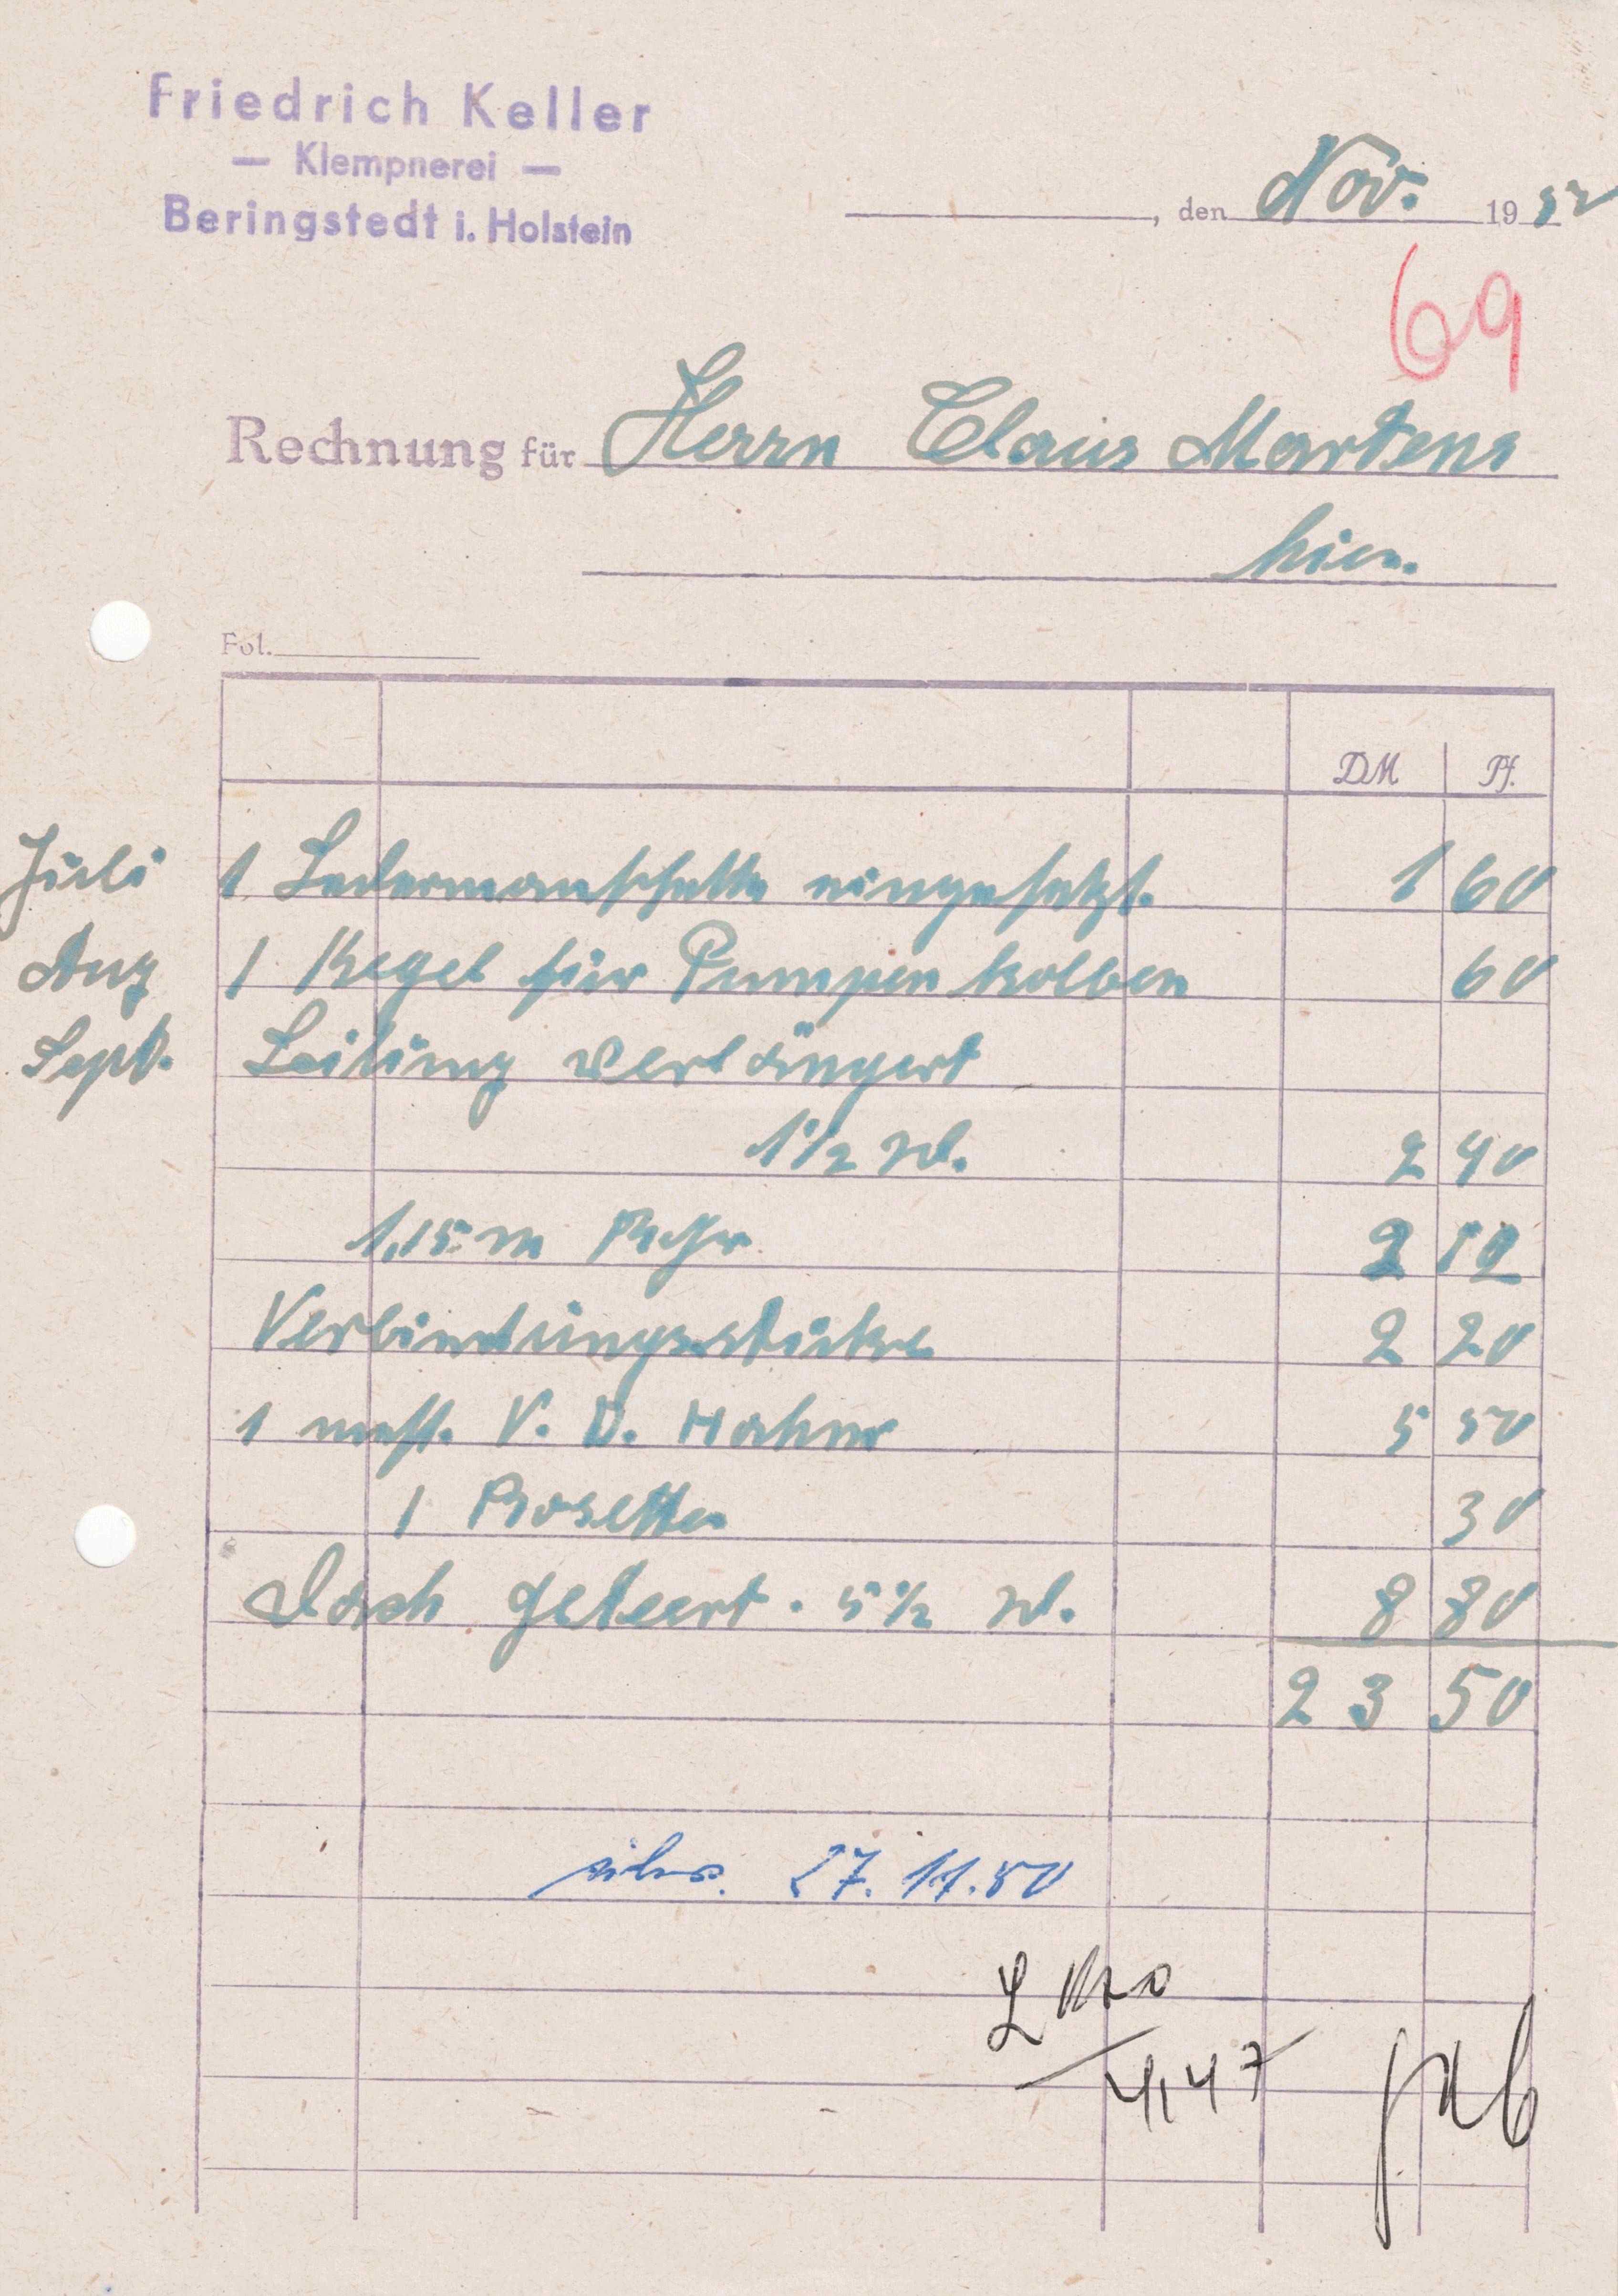 Friedrich Keller
— Klempnerei —
Beringstedt i. Holstein
, den Nov. 1950
69
Rechnung für Herrn Claus Martens
hier.
Fol.
DM Pf.
Juli 1 Ledermanschette eingesetzt. 1 60
Aug 1 Kegel für Pumpenkolben 60
Sept. Leitung verlängert
1 1/2 Std. 2 40
1,15 m Rohr 2 10
Verbindungsstücke 2 20
1 mess. V. D. Hahn 5 50
1 Rosette 30
Dach geteert. 5 1/2 Std. 8 80
23 50
über. 27.11.50
4,47